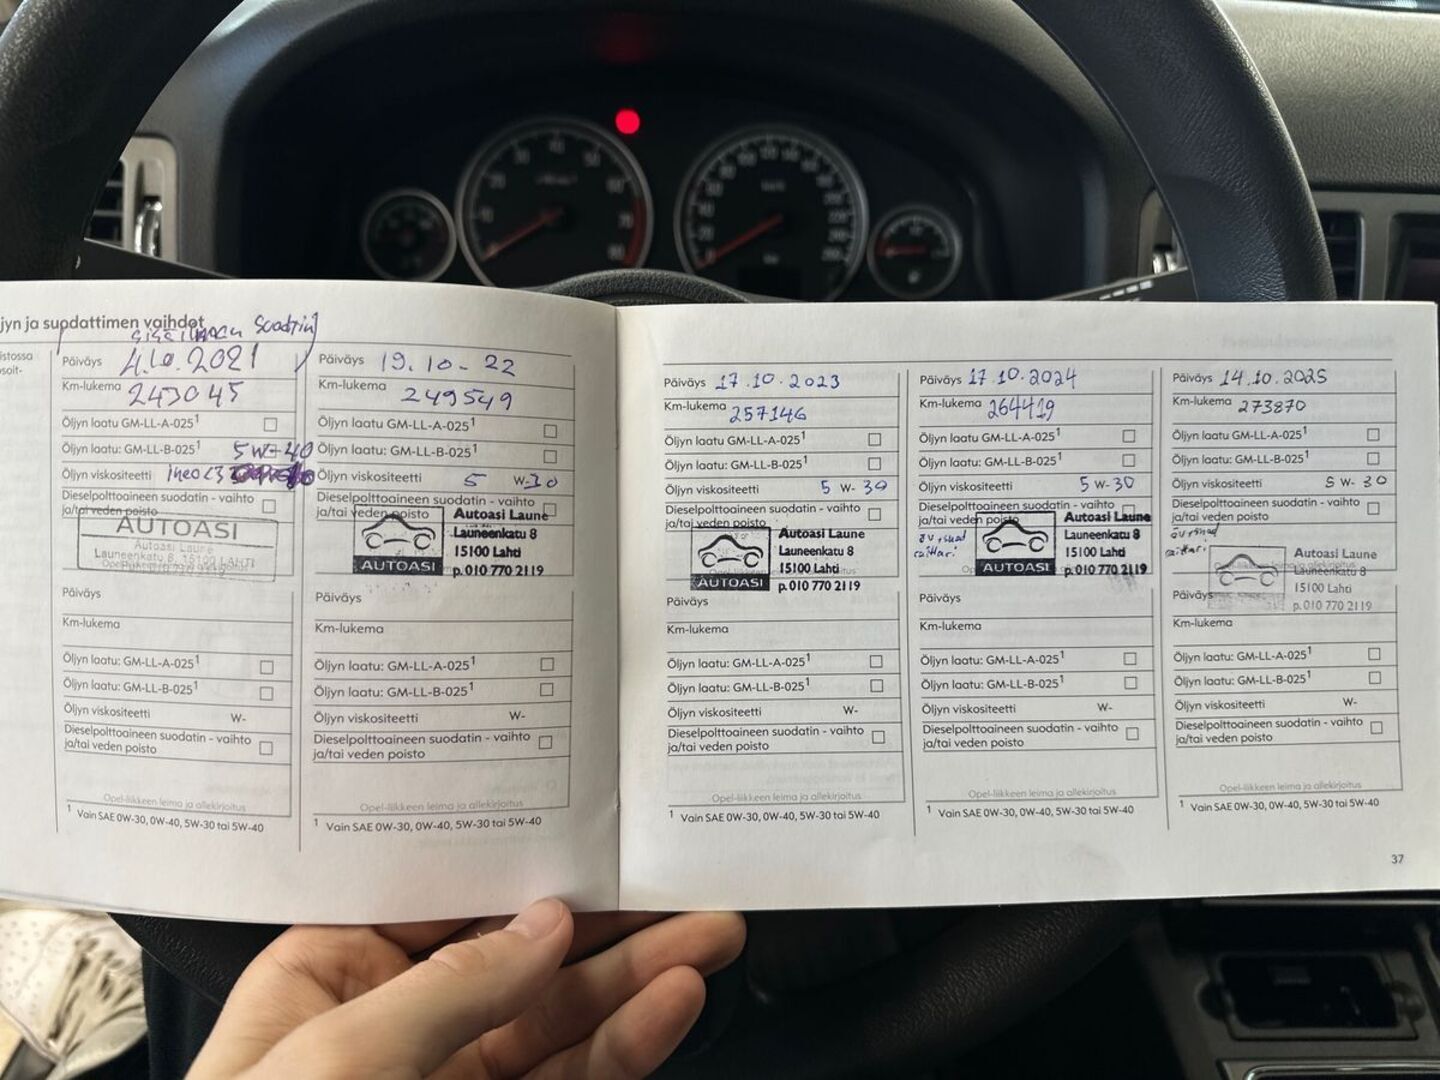 jyn ja suodattimen vaihdot
istossa
Päiväys 4.10.2021
Km-lukema 243045
Öljyn laatu GM-LL-A-025¹
Öljyn laatu: GM-LL-B-025¹
5 W-40
Öljyn viskositeetti
Dieselpolttoaineen suodatin - vaihto
ja/tai veden poisto
AUTOASI
Autoasi Laune
Launeenkatu 8, 15100 LAHTI
Päiväys
Km-lukema
Öljyn laatu: GM-LL-A-025¹
Öljyn laatu: GM-LL-B-025¹
Öljyn viskositeetti W-
Dieselpolttoaineen suodatin - vaihto
ja/tai veden poisto
Opel-liikkeen leima ja allekirjoitus
¹ Vain SAE 0W-30, 0W-40, 5W-30 tai 5W-40
Päiväys 19.10-22
Km-lukema 249549
Öljyn laatu: GM-LL-A-025¹
Öljyn laatu: GM-LL-B-025¹
Öljyn viskositeetti 5 W-30
Dieselpolttoaineen suodatin - vaihto
ja/tai veden poisto
Autoasi Laune
Launeenkatu 8
15100 Lahti
p. 010 770 2119
AUTOASI
Päiväys
Km-lukema
Öljyn laatu: GM-LL-A-025¹
Öljyn laatu: GM-LL-B-025¹
Öljyn viskositeetti W-
Dieselpolttoaineen suodatin - vaihto
ja/tai veden poisto
Opel-liikkeen leima ja allekirjoitus
¹ Vain SAE 0W-30, 0W-40, 5W-30 tai 5W-40
Päiväys 17.10.2023
Km-lukema 257146
Öljyn laatu: GM-LL-A-025¹
Öljyn laatu: GM-LL-B-025¹
Öljyn viskositeetti 5 W- 30
Dieselpolttoaineen suodatin - vaihto
ja/tai veden poisto
Autoasi Laune
Launeenkatu 8
15100 Lahti
p. 010 770 2119
AUTOASI
Päiväys
Km-lukema
Öljyn laatu: GM-LL-A-025¹
Öljyn laatu: GM-LL-B-025¹
Öljyn viskositeetti W-
Dieselpolttoaineen suodatin - vaihto
ja/tai veden poisto
Opel-liikkeen leima ja allekirjoitus
¹ Vain SAE 0W-30, 0W-40, 5W-30 tai 5W-40
Päiväys 17.10.2024
Km-lukema 264419
Öljyn laatu GM-LL-A-025¹
Öljyn laatu: GM-LL-B-025¹
Öljyn viskositeetti 5 W-30
Dieselpolttoaineen suodatin - vaihto
ja/tai veden poisto
Autoasi Laune
Launeenkatu 8
15100 Lahti
p. 010 770 2119
AUTOASI
Päiväys
Km-lukema
Öljyn laatu: GM-LL-A-025¹
Öljyn laatu: GM-LL-B-025¹
Öljyn viskositeetti W-
Dieselpolttoaineen suodatin - vaihto
ja/tai veden poisto
Opel-liikkeen leima ja allekirjoitus
¹ Vain SAE 0W-30, 0W-40, 5W-30 tai 5W-40
Päiväys 14.10.2025
Km-lukema 273870
Öljyn laatu: GM-LL-A-025¹
Öljyn laatu: GM-LL-B-025¹
Öljyn viskositeetti 5 W- 30
Dieselpolttoaineen suodatin - vaihto
ja/tai veden poisto
Autoasi Laune
Launeenkatu 8
15100 Lahti
p. 010 770 2119
Päiväys
Km-lukema
Öljyn laatu: GM-LL-A-025¹
Öljyn laatu: GM-LL-B-025¹
Öljyn viskositeetti W-
Dieselpolttoaineen suodatin - vaihto
ja/tai veden poisto
Opel-liikkeen leima ja allekirjoitus
¹ Vain SAE 0W-30, 0W-40, 5W-30 tai 5W-40
37